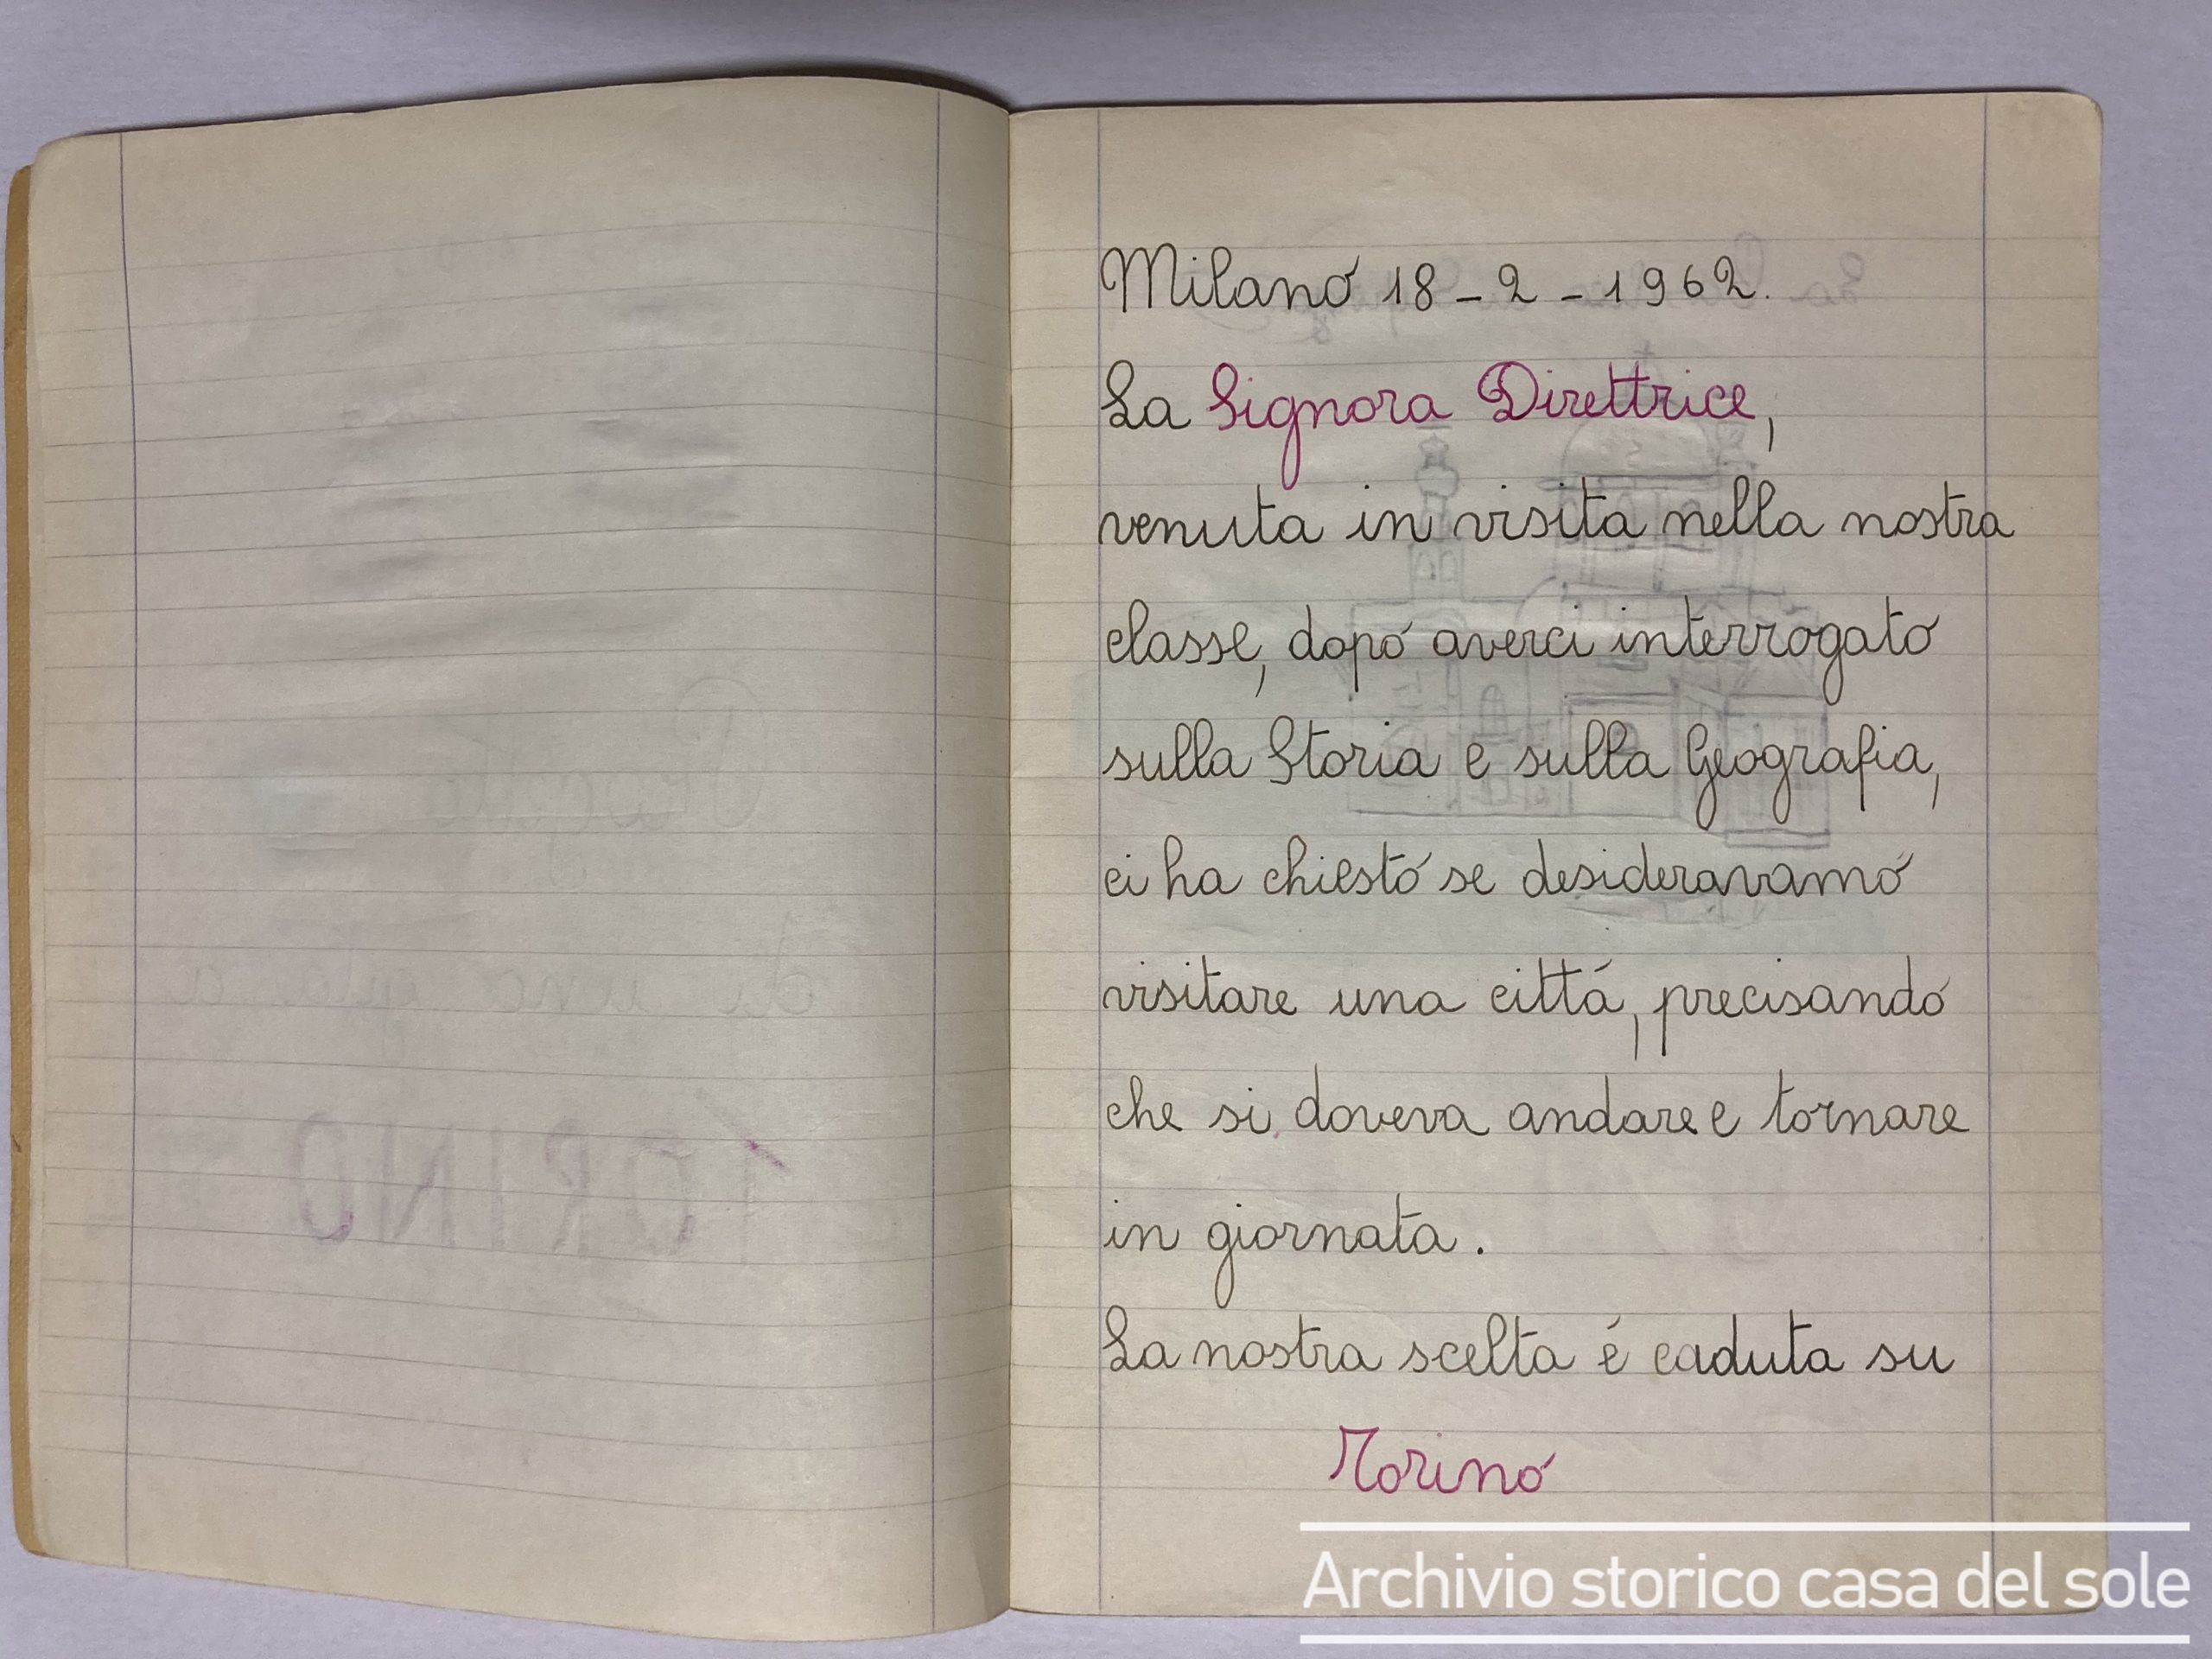 Milano 18 - 2 - 1962.
La Signora Direttrice,
venuta in visita nella nostra
classe, dopo averci interrogato
sulla Storia e sulla Geografia,
ci ha chiesto se desideravamo
visitare una città, precisando
che si doveva andare e tornare
in giornata.
La nostra scelta é caduta su
Torino
Archivio storico casa del sole
TORINO